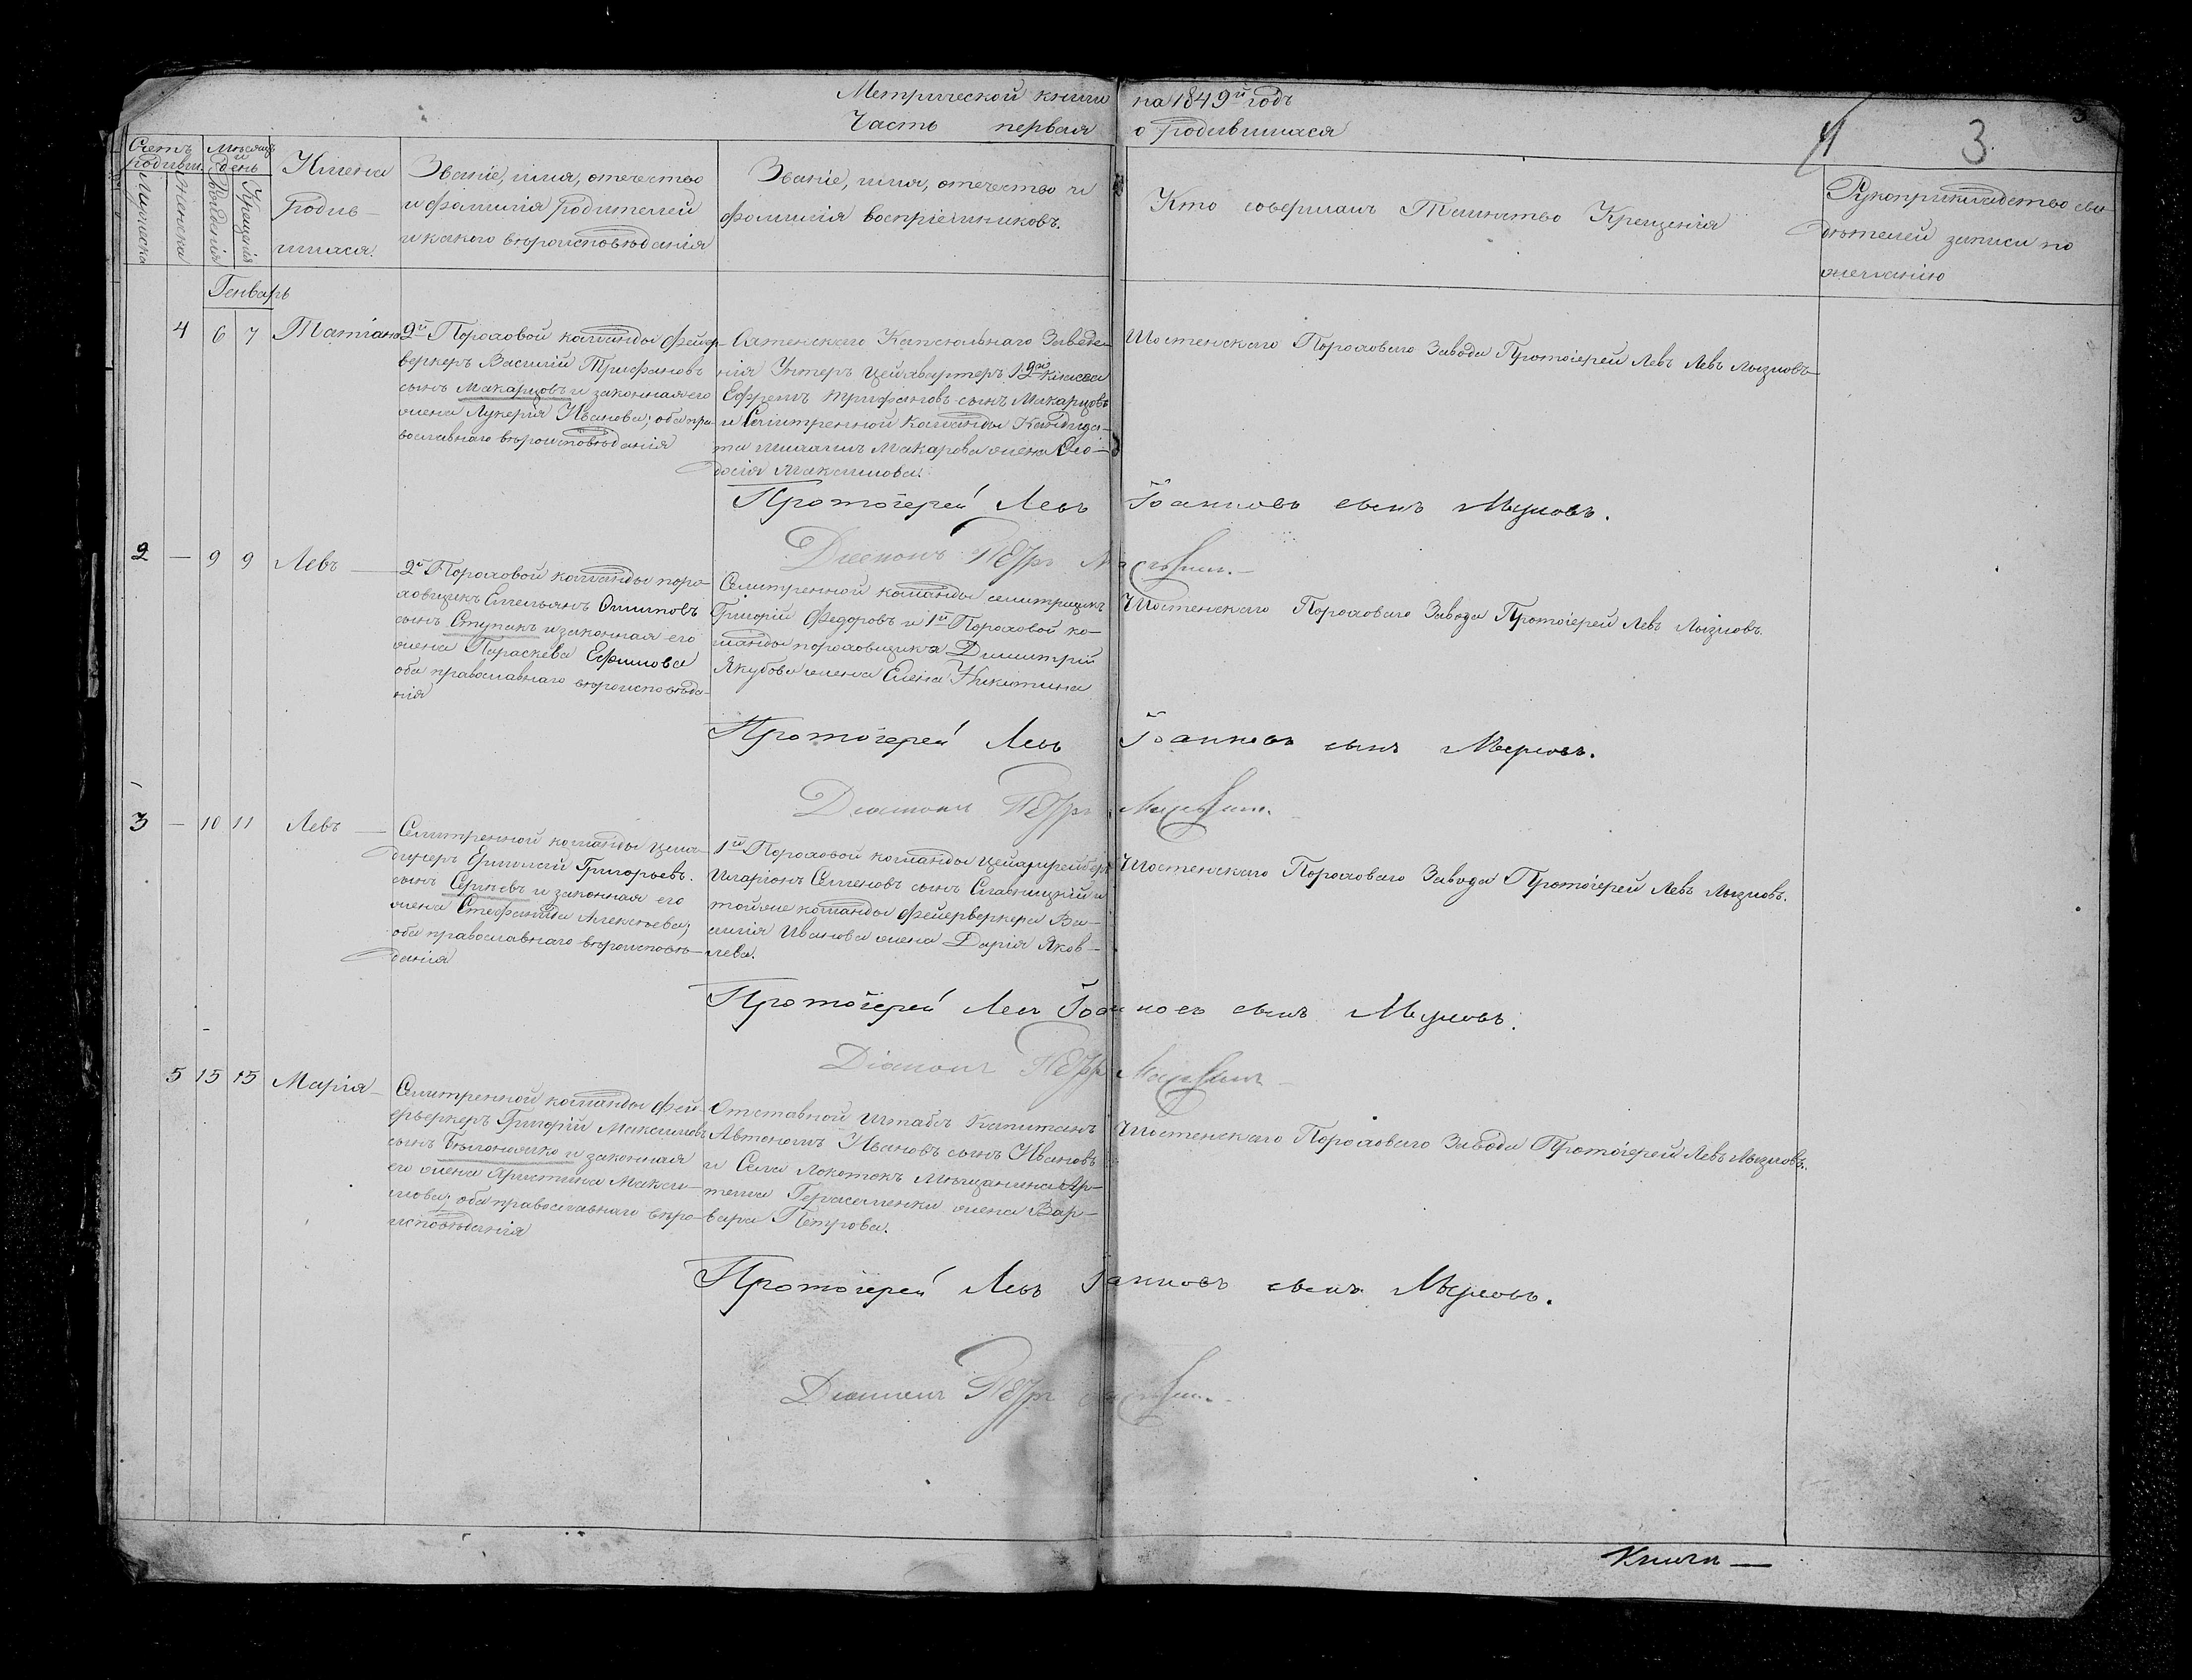 Метрической книги на 1849й годъ
Часть первая о родившихся
3
Счетъ родивш.
Мужеска
Женска
Мѣсяцъ и день
Рожденія
Крещенія
Имена
родив-
шихся.
Званіе, имя, отечество
и фамилія родителей
и какого вѣроисповѣданія
Званіе, имя, отечество и
фамилія воспріемниковъ.
Кто совершалъ Таинство Крещенія
Рукоприкладство сви-
дѣтелей записи по
желанію
Генварь
4 6 7 Татіана
2й Пороховой команды фейер-
веркеръ Василій Трифоновъ
сынъ Макарцовъ и законная его
жена Лукерія Иванова; оба пра-
вославнаго вѣроисповѣданія
Охтенскаго Капсюльнаго Заведе-
нія Унтеръ цейхвартеръ 2го класса
Ефремъ Трифоновъ сынъ Макарцовъ
и Селитренной команды Кандида-
та Макарова жена Өео-
досія Максимова.
Шостенскаго Пороховаго Завода Протоіерей Левъ Левъ Мызловъ
Протоіерей Левъ Іоанновъ сынъ Мызловъ.
Діаконъ Петръ
2 — 9 9 Левъ —
2й Пороховой команды поро-
ховщикъ Емельянъ Осиповъ
сынъ Ступакъ и законная его
жена Параскева Ефимова
оба православнаго вѣроисповѣда-
нія
Селитренной команды селитрщикъ
Григорій Федоровъ и 1й Пороховой ко-
манды пороховщика Димитрія
Якубова жена Елена Никитина
Шостенскаго Пороховаго Завода Протоіерей Левъ Мызловъ.
Протоіерей Левъ Іоанновъ сынъ Мызловъ.
Діаконъ Петръ
3 — 10 11 Левъ —
Селитренной команды цейх-
динеръ Ермолай Григорьевъ
сынъ Сергѣевъ и законная его
жена Стефанида Алексѣева;
оба православнаго вѣроисповѣ-
данія
1й Пороховой команды цейхшрейберъ
Иларіонъ Семеновъ сынъ Славницкій и
той же команды фейерверкера Ва-
силія Иванова жена Дарія Яков-
лева.
Шостенскаго Пороховаго Завода Протоіерей Левъ Мызловъ.
Протоіерей Левъ Іоанновъ сынъ Мызловъ.
Діаконъ Петръ
5 15 15 Марія —
Селитренной команды фей-
ерверкеръ Григорій Максимовъ
сынъ Бѣлоножко и законная
его жена Христина Макси-
мова; оба православнаго вѣро-
исповѣданія
Отставной Штабсъ Капитанъ
Автономъ Ивановъ сынъ Ивановъ
и Села Локотокъ Мѣщанина Ар-
тема Герасименки жена Вар-
вара Петрова.
Шостенскаго Пороховаго Завода Протоіерей Левъ Мызловъ.
Протоіерей Левъ Іоанновъ сынъ Мызловъ.
Діаконъ Петръ
Книги —